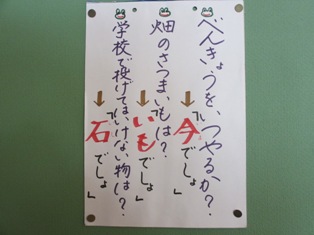 べんきょうを、いつやるか？
→「今でしょ」
畑のさつまいもは？
→「いもでしょ」
学校で投げてはいけない物は？
→「石でしょ」